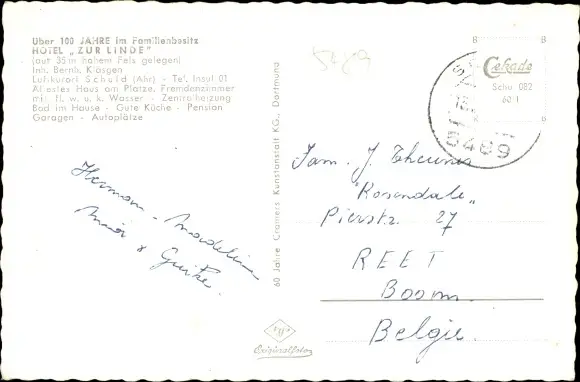 Über 100 JAHRE im Familienbesitz
HOTEL „ZUR LINDE"
(auf 35 m hohem Fels gelegen)
Inh. Bernh. Kläsgen
Luftkurort Schuld (Ahr) - Tel. Insul 01
Ältestes Haus am Platze. Fremdenzimmer
mit fl. w. u. k. Wasser - Zentralheizung
Bad im Hause - Gute Küche - Pension
Garagen - Autoplätze
5489
B B
Cekade
Schu 082
60 1
B
5489
60 Jahre Cramers Kunstanstalt KG., Dortmund
Hermann - Madeleine
&
Fam. J. Theunis
"Rosendale"
Pierstr. 27
REET
Boom
Belgie.
Originalfoto